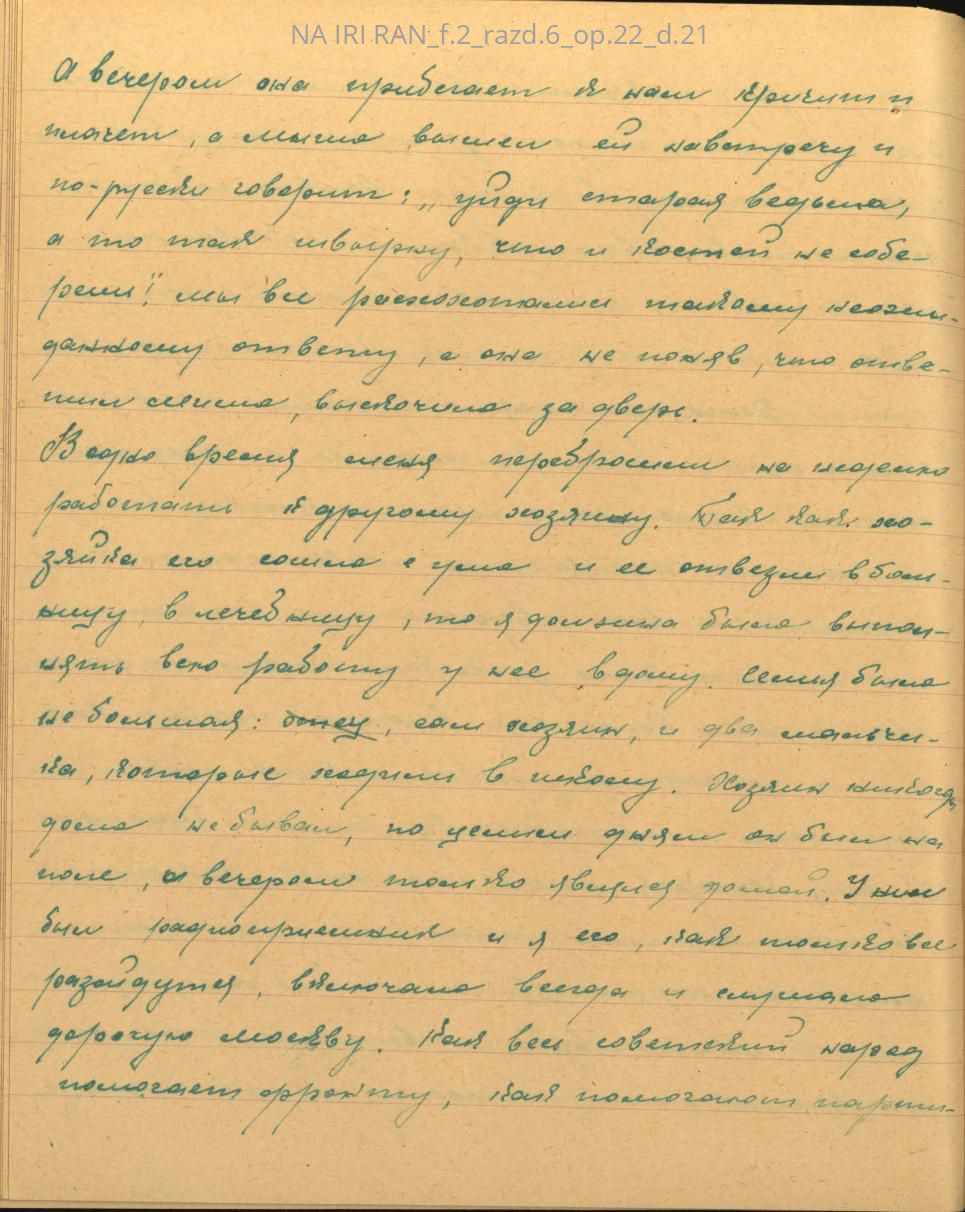 NA IRI RAN_f.2_razd.6_op.22_d.21
А вечером она прибегает к нам кричит и
плачет, а Миша вышел ей навстречу и
по-русски говорит: „уйди старая ведьма,
а то так швырну, что и костей не собе-
решь!" Мы все расхохотались такому неожи-
данному ответу, а она не поняв, что отве-
тил Миша, выскочила за дверь.
В одно время меня перебросили на неделю
работать к другому хозяину. Так как хо-
зяйка его сошла с ума и ее отвезли в боль-
ницу, в лечебницу, то я должна была выпол-
нять всю работу у нее в дому. Семья была
не большая: отец, сам хозяин, и два мальчи-
ка, которые ходили в школу. Хозяин никогда
дома не бывал, по целым дням он был на
поле, а вечером только являлся домой. У них
был радиоприемник и я его, как только все
разойдутся, включала всегда и слушала
дорогую Москву. Как весь советский народ
помогает фронту, как помогают парти-